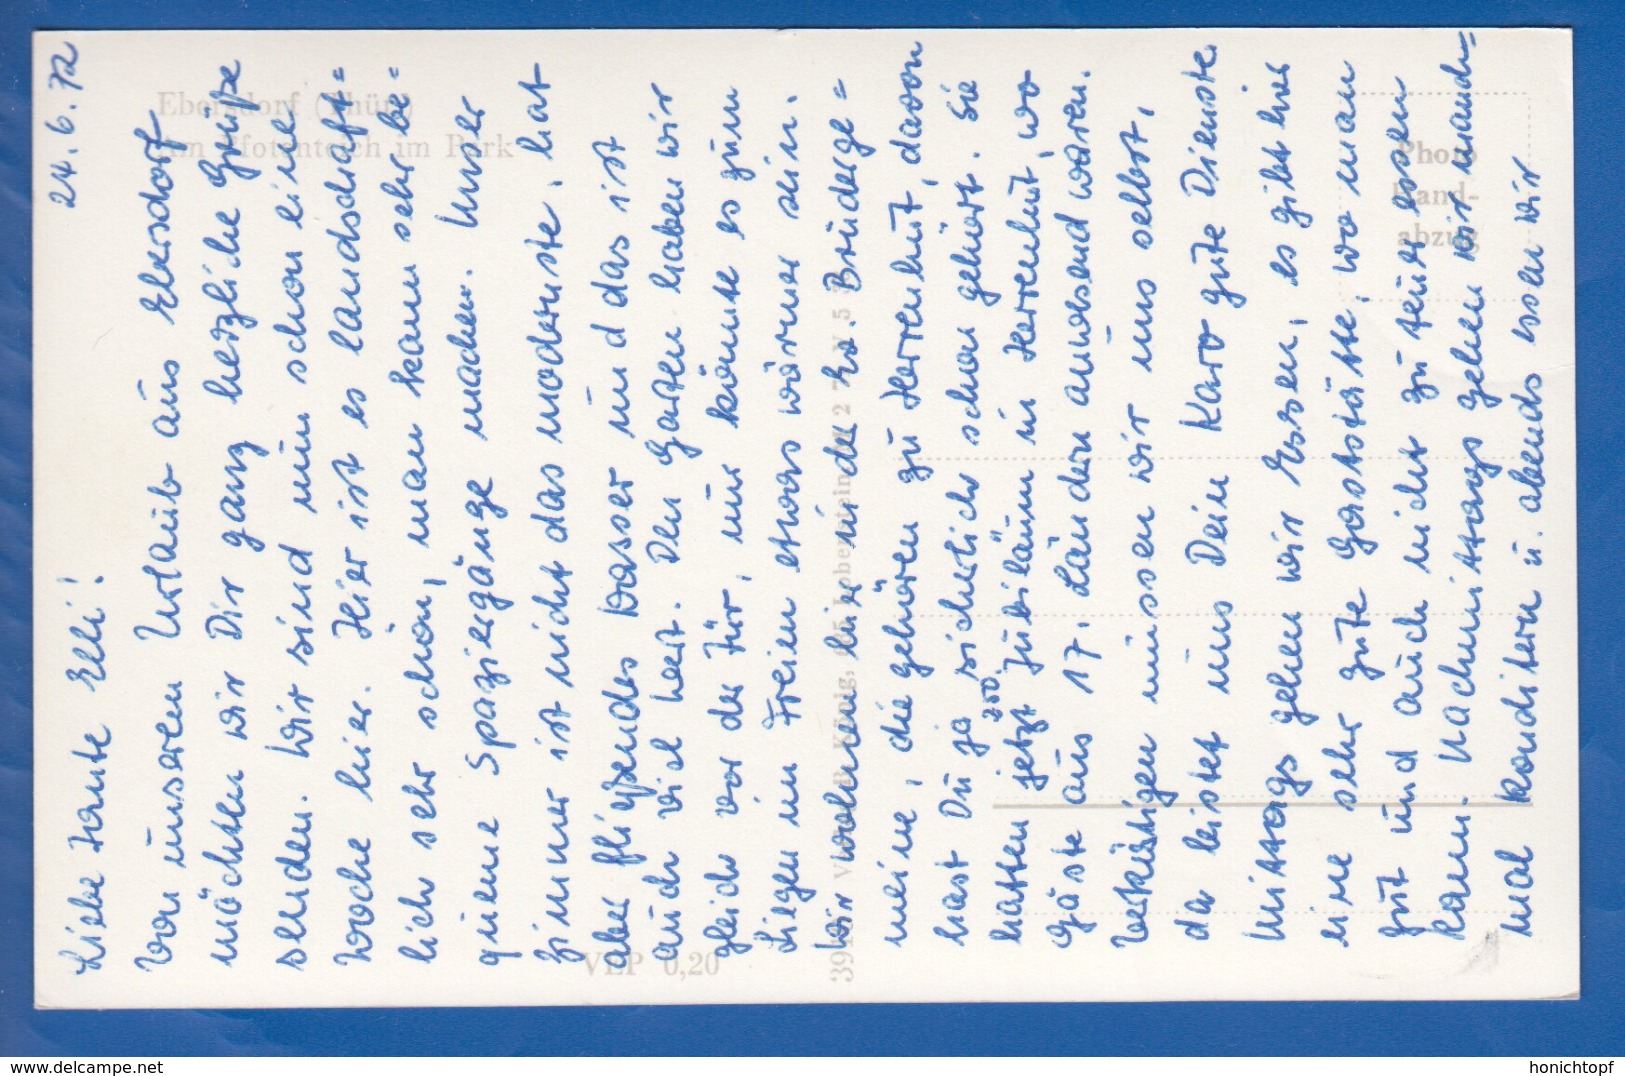 24.6.72
Liebe Tante Elli!
Von unserem Urlaub aus Ebersdorf
möchten wir Dir ganz herzliche Grüße
senden. Wir sind nun schon eine
Woche hier. Hier ist es landschaft=
lich sehr schön, man kann sehr be=
queme Spaziergänge machen. Unser
Zimmer ist nicht das modernste, hat
aber fließendes Wasser und das ist
auch viel wert. Den Garten haben wir
gleich vor der Tür, nur könnte es zum
Liegen im Freien etwas wärmer sein.
Wir wohnen hier in der Ev. Brüderge=
meine, die gehören zu Herrnhut, davon
hast Du ja sicherlich schon gehört. Sie
hatten jetzt 250. Jubiläum in Herrnhut, wo
Gäste aus 17. Ländern anwesend waren.
Verköstigen müssen wir uns selbst,
da leistet uns Dein Karo gute Dienste.
Mittags gehen wir Essen, es gibt hier
eine sehr gute Gaststätte, wo man
gut und auch nicht zu teuer essen
kann. Nachmittags gehen wir manch=
mal konditern u. abends essen wir
Ebersdorf (Thür.)
Am Pfotenteich im Park
Photo
Hand-
abzug
VEP 0,20
König, Lobenstein